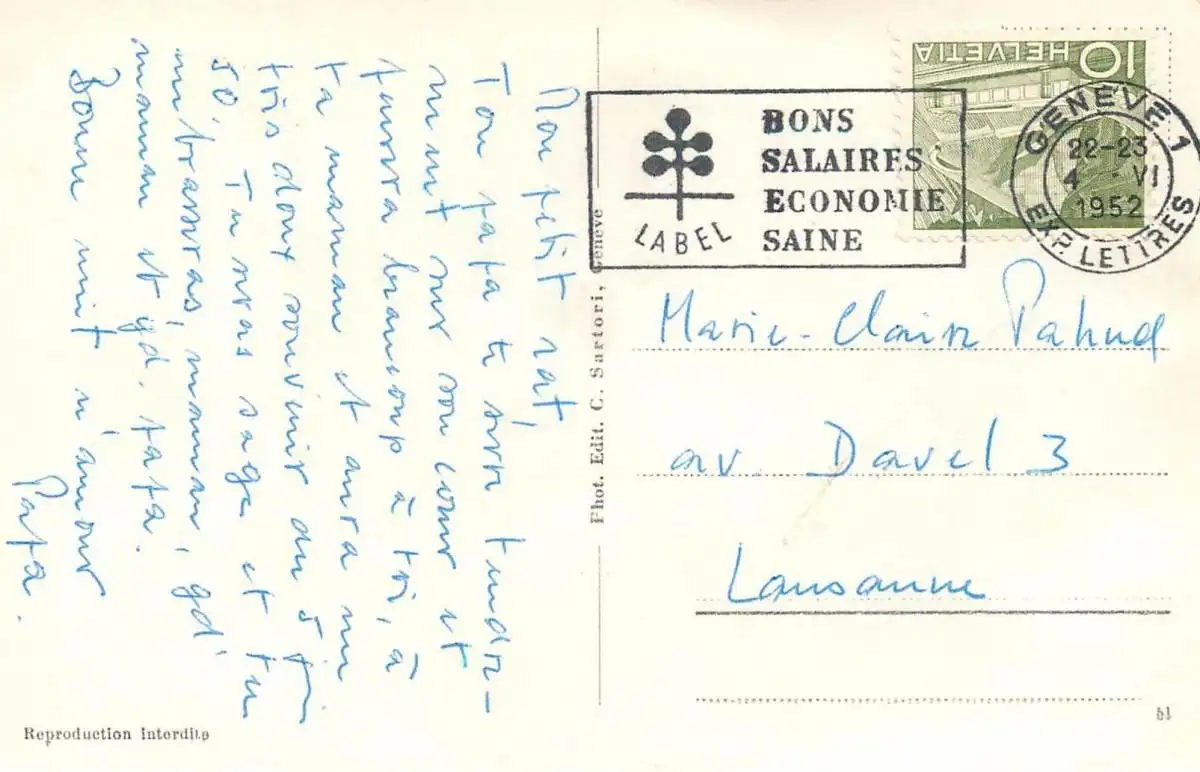 Mon petit rat,
Ton papa te serre tendre-
ment sur son cœur et
pensera beaucoup à toi, à
ta maman et aura un
très doux souvenir du 5
50. Tu seras sage et tu
embrasseras, maman, gd.
maman et gd. papa.
Bonne nuit m'amour
Papa.
Reproduction Interdite
Phot. Edit. C. Sartori, Genève
LABEL
BONS
SALAIRES
ECONOMIE
SAINE
HELVETIA
10
GENÈVE 1
22-23
4 · VI
1952
EXP. LETTRES
Marie-Claire Pahud
av. Davel 3
Lausanne
51